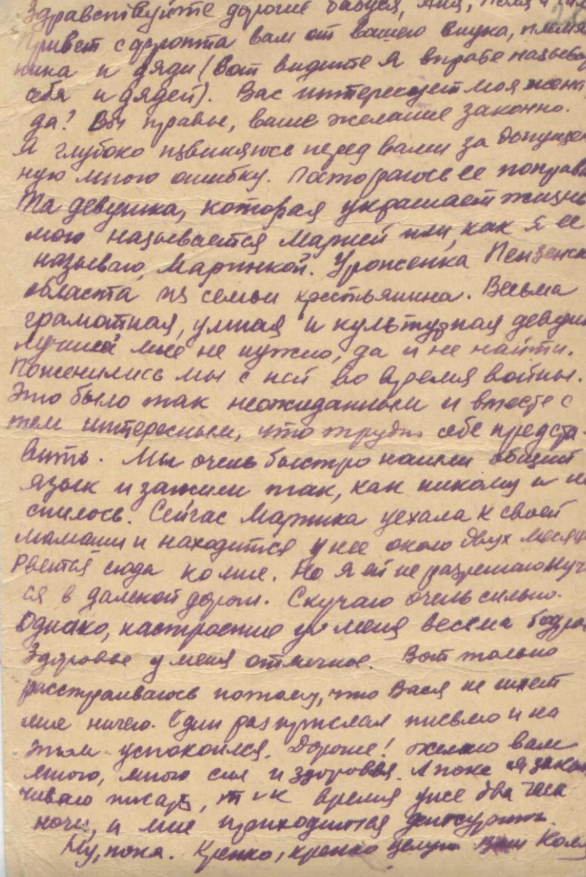 Здравствуйте дорогие бабуся,
Привет с фронта вам от вашего внука, племян
ника и дяди (вот видите я вправе называ
себя и дядей). Вас интересует моя жени
да? Вы правы, ваше желание законно.
Я глубоко извиняюсь перед вами за допущен
ную мною ошибку. Постараюсь ее поправ
Та девушка, которая украшает жизнь
мою называется Марией или, как я ее
называю, Маринкой. Уроженка Пензенск
области из семьи крестьянина. Весьма
грамотная, умная и культурная девуш
лучшей мне не нужно, да и не найти.
Поженились мы с ней во время войны.
Это было так неожиданным и вместе с
тем интересным, что трудно себе предста
вить. Мы очень быстро нашли общий
язык и зажили так, как никому и не
снилось. Сейчас Маринка уехала к своей
мамаши и находится у нее около двух месяц
рвется сюда ко мне. Но я ей не разрешаю муч
ся в далекой дороги. Скучаю очень сильно.
Однако, настроение у меня весьма бодро
Здоровье у меня отличное. Вот только
расстраиваюсь потому, что Вася не шлет
мне ничего. Один раз прислал письмо и на
этом успокоился. Дорогие! желаю вам
много, много сил и здоровья. А пока я закан
чиваю писать, т к время уже два часа
ночи, и мне приходится дежурить.
Ну, пока. Крепко, крепко целую ваш Коля